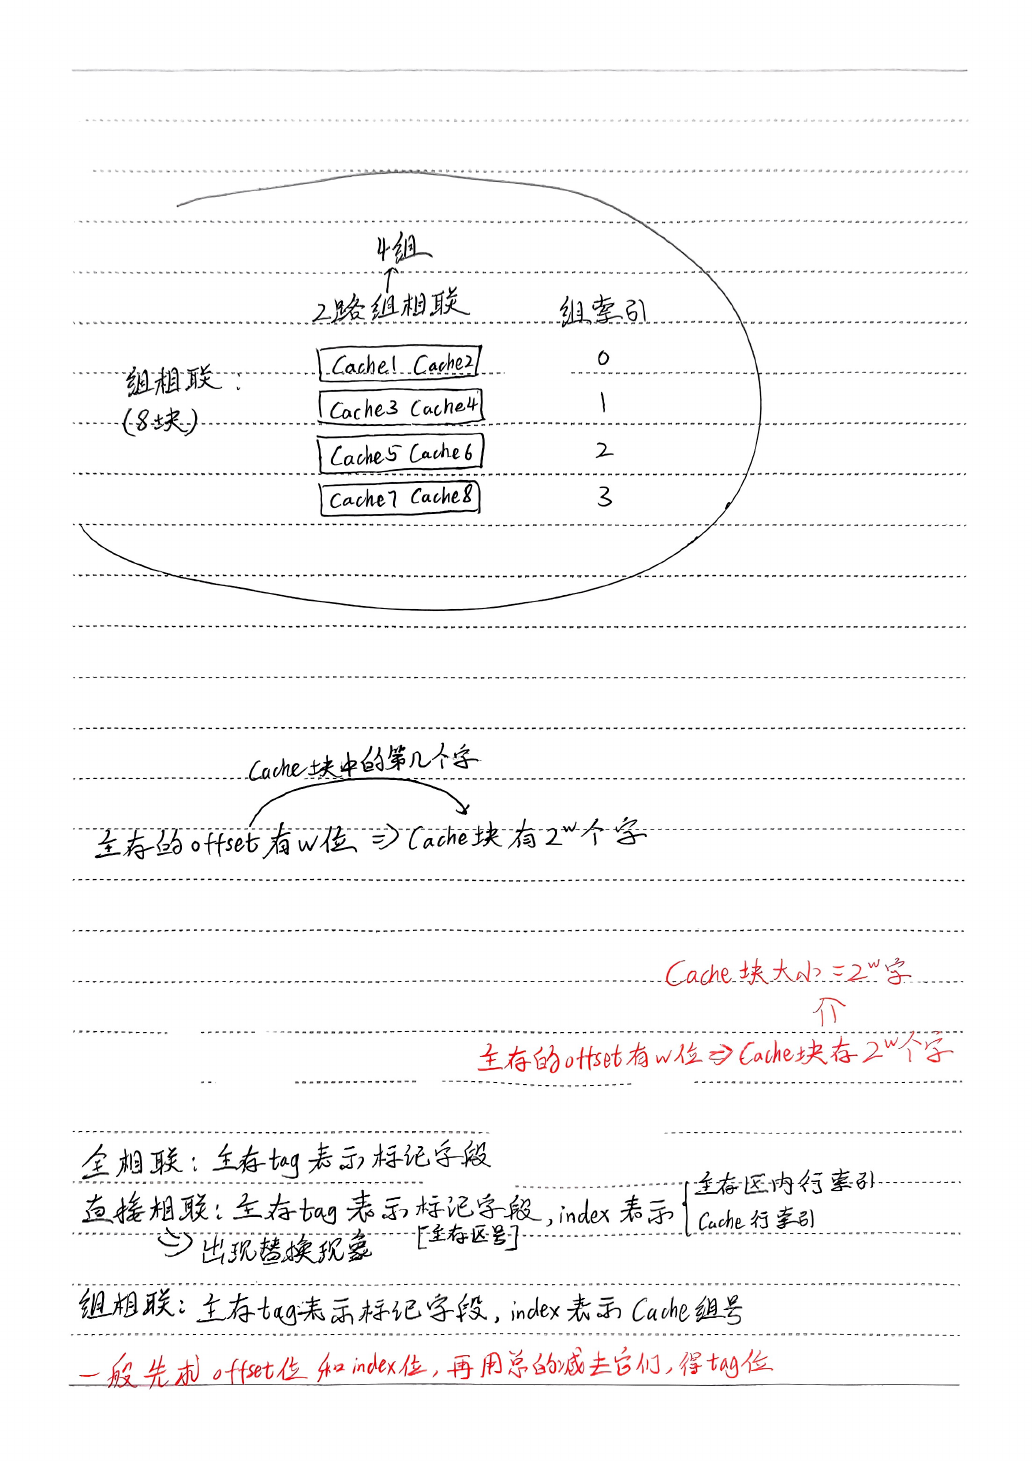 4组
2路组相联 组索引
Cache1 Cache2 0
组相联:
(8块)
Cache3 Cache4 1
Cache5 Cache6 2
Cache7 Cache8 3
Cache块中的第几个字
主存的offset有w位 => Cache块有2^w个字
Cache块大小=2^w字
⇑
主存的offset有w位=>Cache块存2^w个字
全相联: 主存tag表示标记字段
直接相联: 主存tag表示标记字段, index表示 { 主存区内行索引
Cache行索引
[主存区号]
=> 出现替换现象
组相联: 主存tag表示标记字段, index表示Cache组号
一般先求offset位和index位, 再用总的减去它们, 得tag位